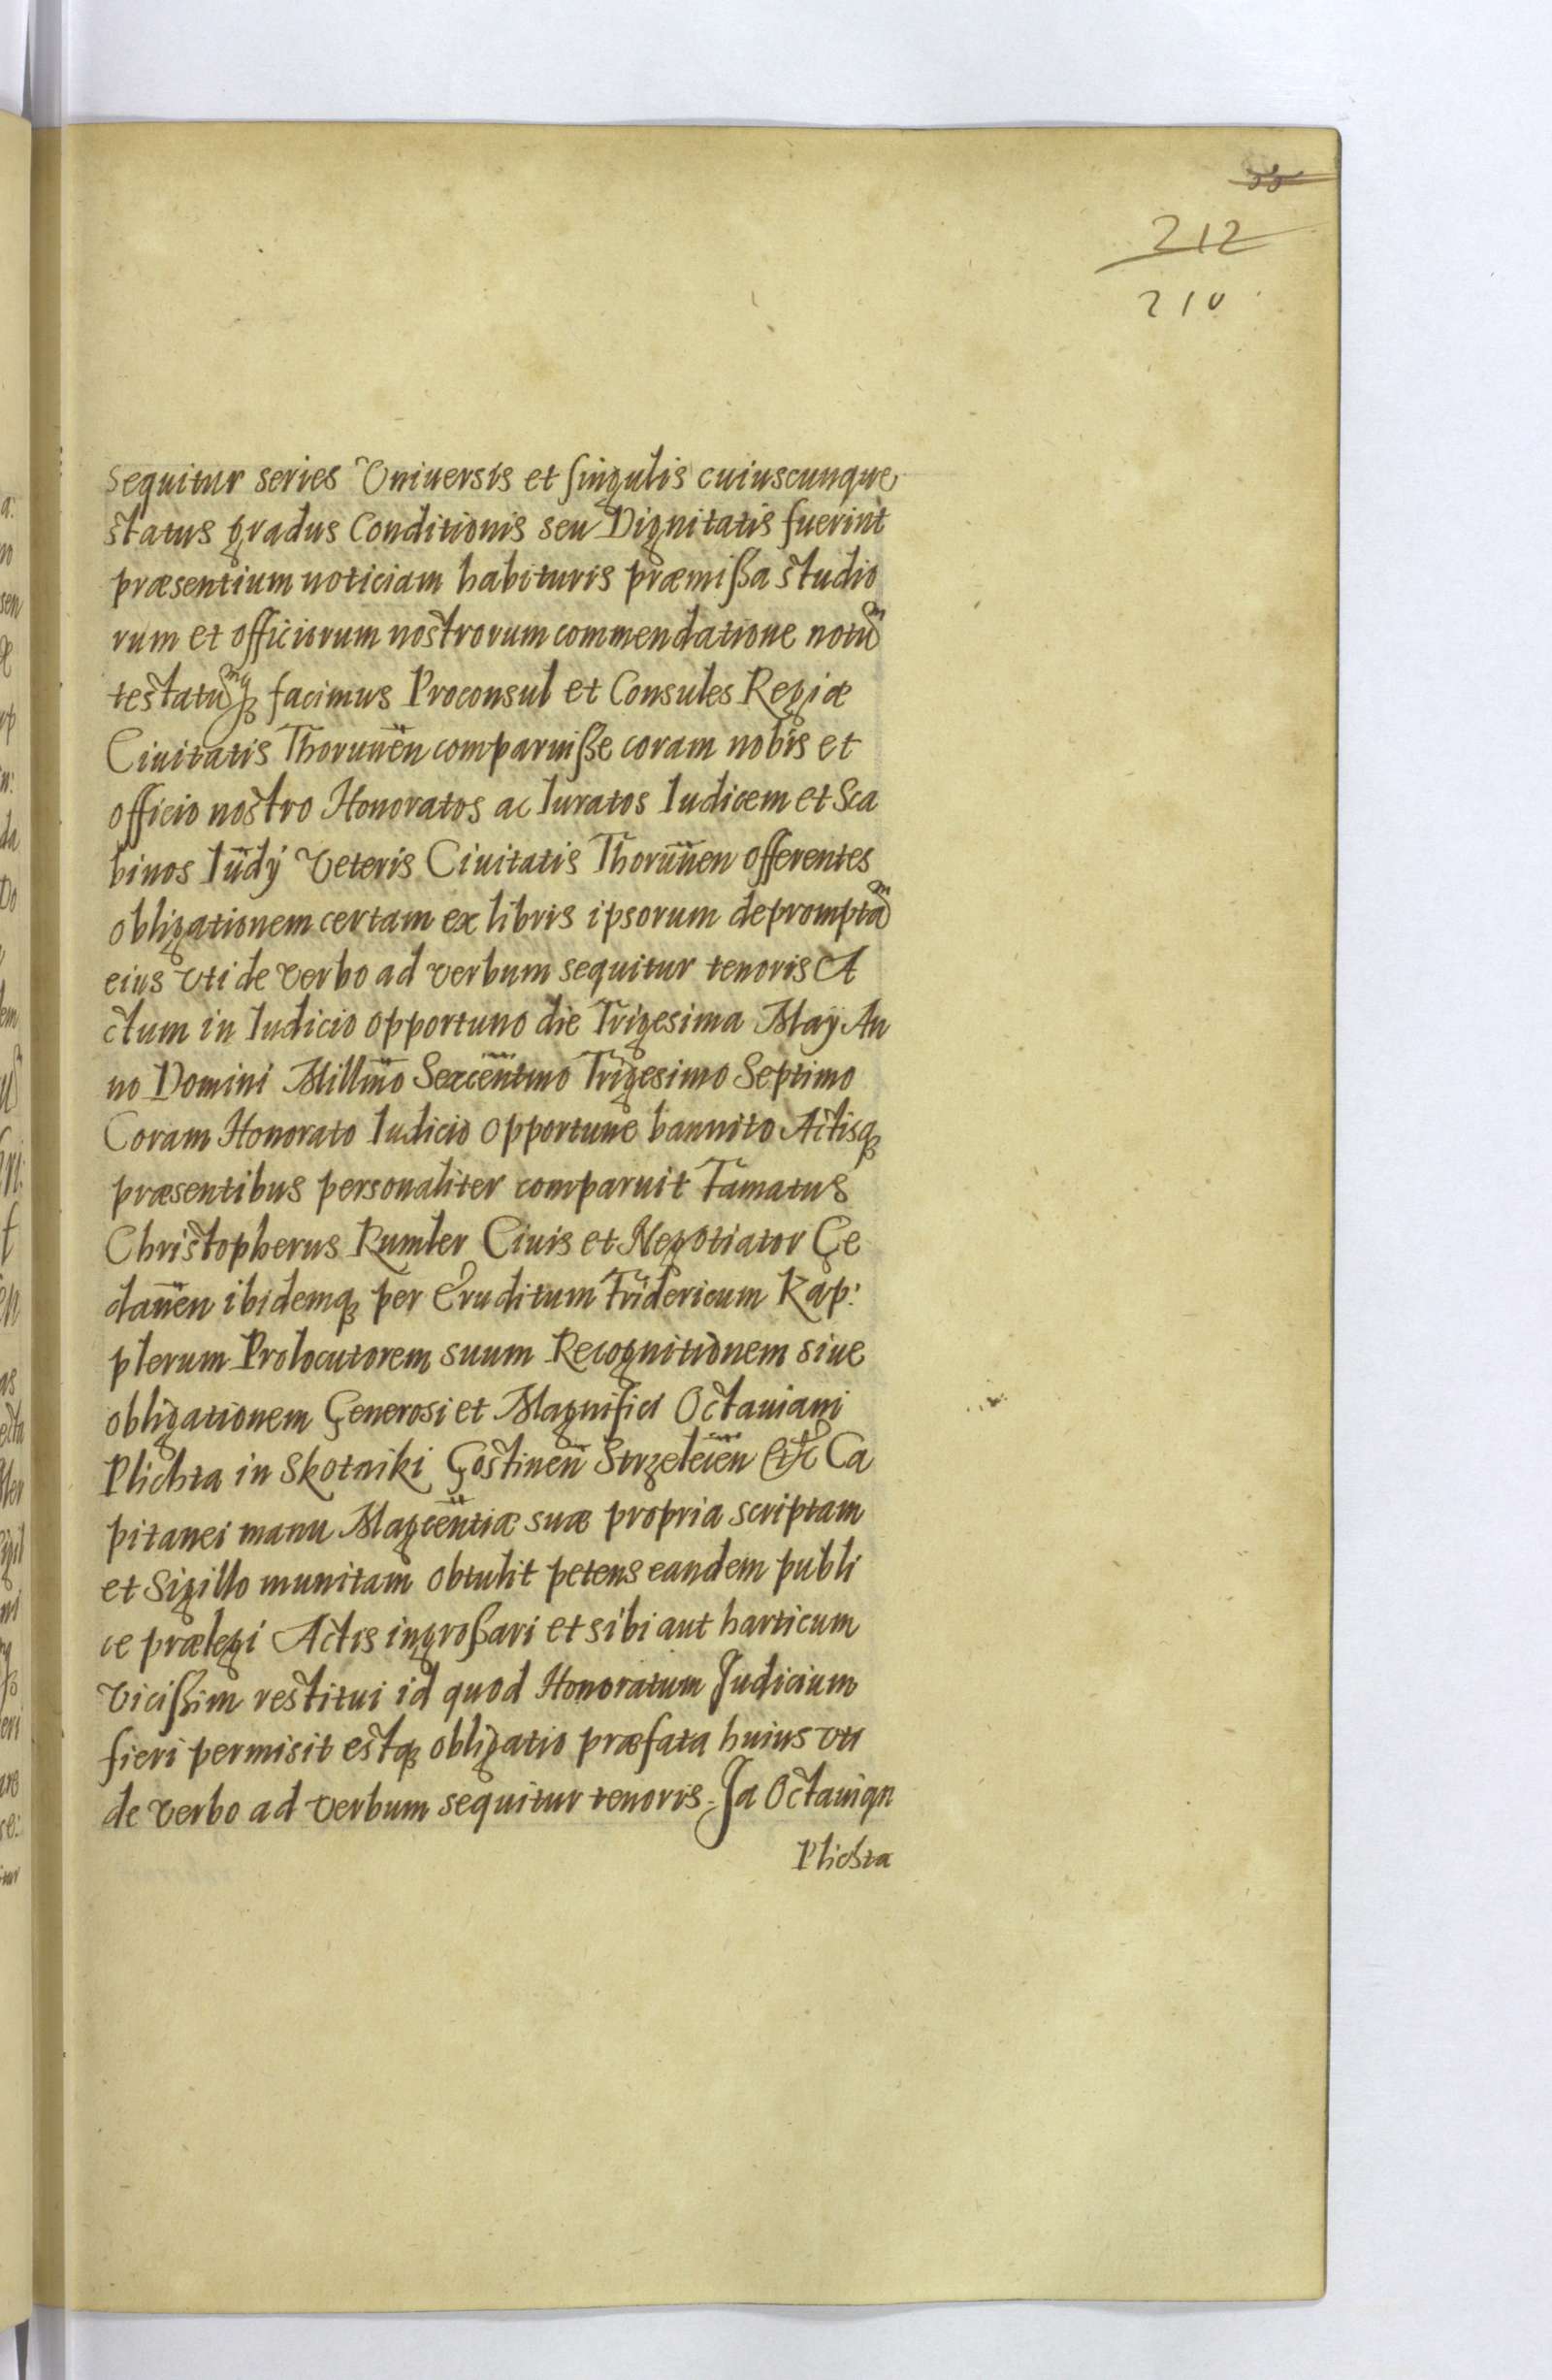 212
210
sequitur series Vniuersis et singulis cuiuscunque
status gradus Conditionis seu Dignitatis fuerint
præsentium noticiam habituris præmißa studio
rum et officiorum nostrorum commendatione notũ
testatũq facimus Proconsul et Consules Regiæ
Ciuitatis Thorunen comparuiße coram nobis et
officio nostro Honoratos ac Iuratos Iudicem et Sca
binos Iudÿ Veteris Ciuitatis Thorunen offerentes
obligationem certam ex libris ipsorum depromptã
eius vti de verbo ad verbum sequitur tenoris A
ctum in Iudicio opportuno die Trigesima Maÿ An
no Domini Millmo Sexcentmo Trigesimo Septimo
Coram Honorato Iudicio opportune bannito Actisq
præsentibus personaliter comparuit Famatus
Christopherus Rumler Ciuis et Negotiator Ge
danen ibidemq per Eruditum Fridericum Kap:
plerum Prolocutorem suum Recognitionem siue
obligationem Generosi et Magnifici Octauiani
Plichta in Skotniki Gostinen Strzelecen etc Ca
pitanei manu Magcentiæ suæ propria scriptam
et Sigillo munitam obtulit petens eandem publi
ce prælegi Actis ingroßari et sibi aut harticum
vicißim restitui id quod Honoratum Judicium
fieri permisit estq obligatio præfata huius vti
de verbo ad verbum sequitur tenoris. Ja Octauian
Plichta